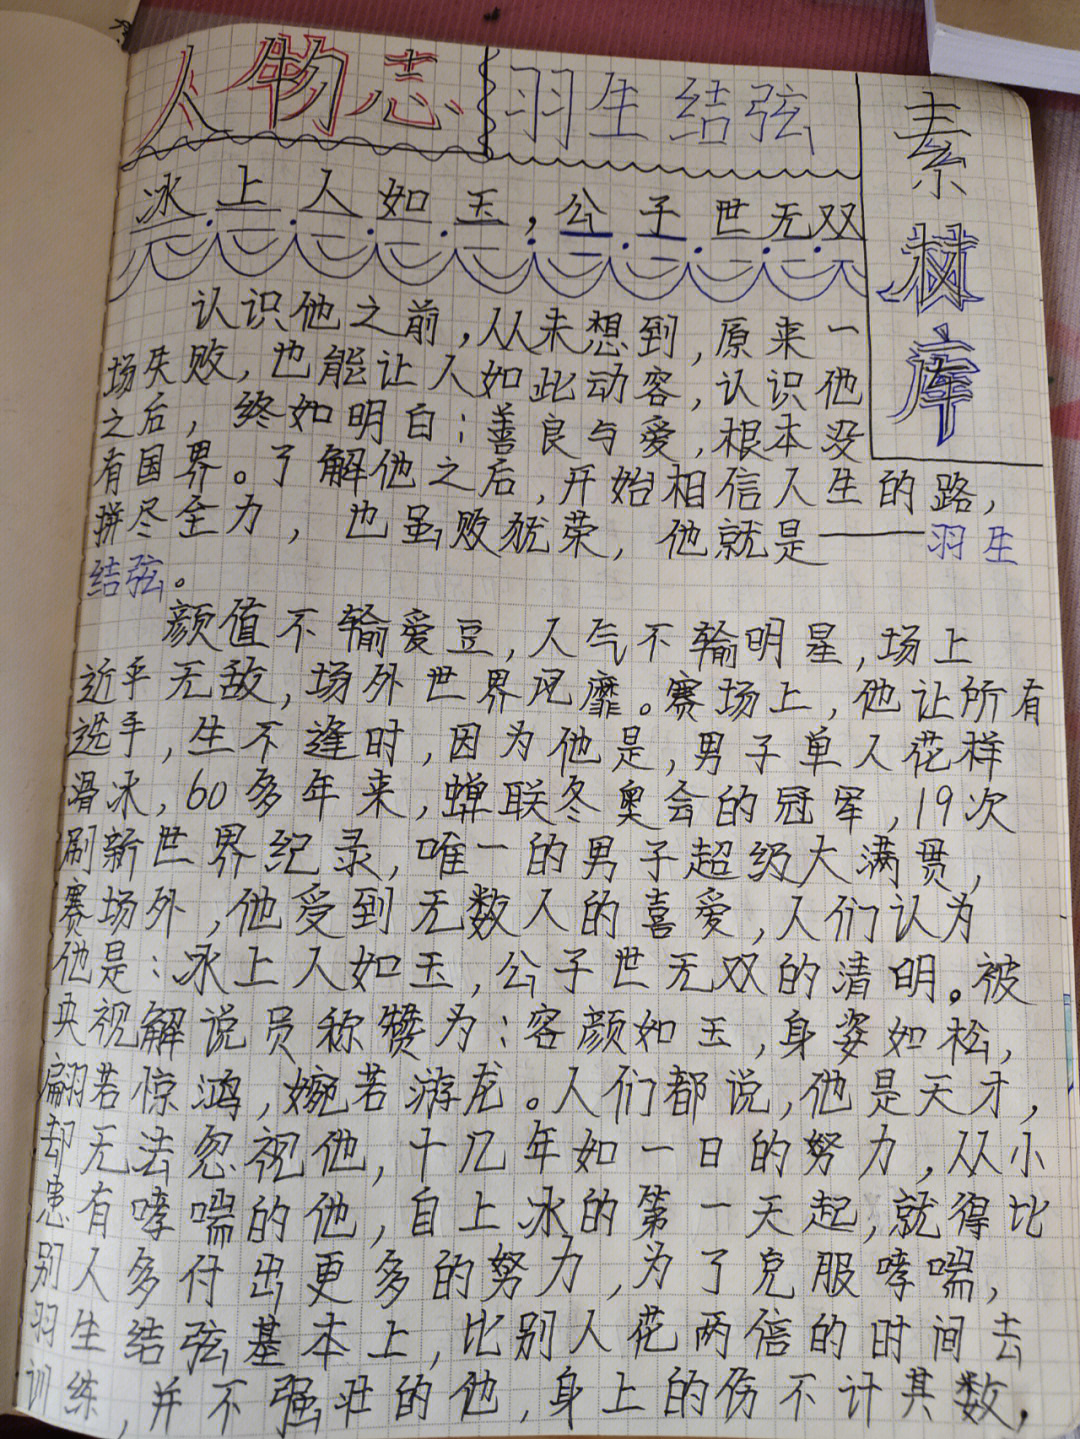 人物志
羽生结弦
素材库
冰上人如玉,公子世无双
认识他之前,从未想到,原来一
场失败,也能让人如此动容,认识他
之后,终如明白:善良与爱,根本没
有国界。了解他之后,开始相信人生的路,
拼尽全力,也虽败犹荣,他就是——羽生
结弦。
颜值不输爱豆,人气不输明星,场上
近乎无敌,场外世界风靡。赛场上,他让所有
选手,生不逢时,因为他是,男子单人花样
滑冰,60多年来,蝉联冬奥会的冠军,19次
刷新世界纪录,唯一的男子超级大满贯,
赛场外,他受到无数人的喜爱,人们认为
他是:冰上人如玉,公子世无双的清明。被
央视解说员称赞为:容颜如玉,身姿如松,
翩若惊鸿,婉若游龙。人们都说,他是天才,
却无法忽视他,十几年如一日的努力,从小
患有哮喘的他,自上冰的第一天起,就得比
别人多付出更多的努力,为了克服哮喘,
羽生结弦基本上,比别人花两倍的时间去
训练,并不强壮的他,身上的伤不计其数,